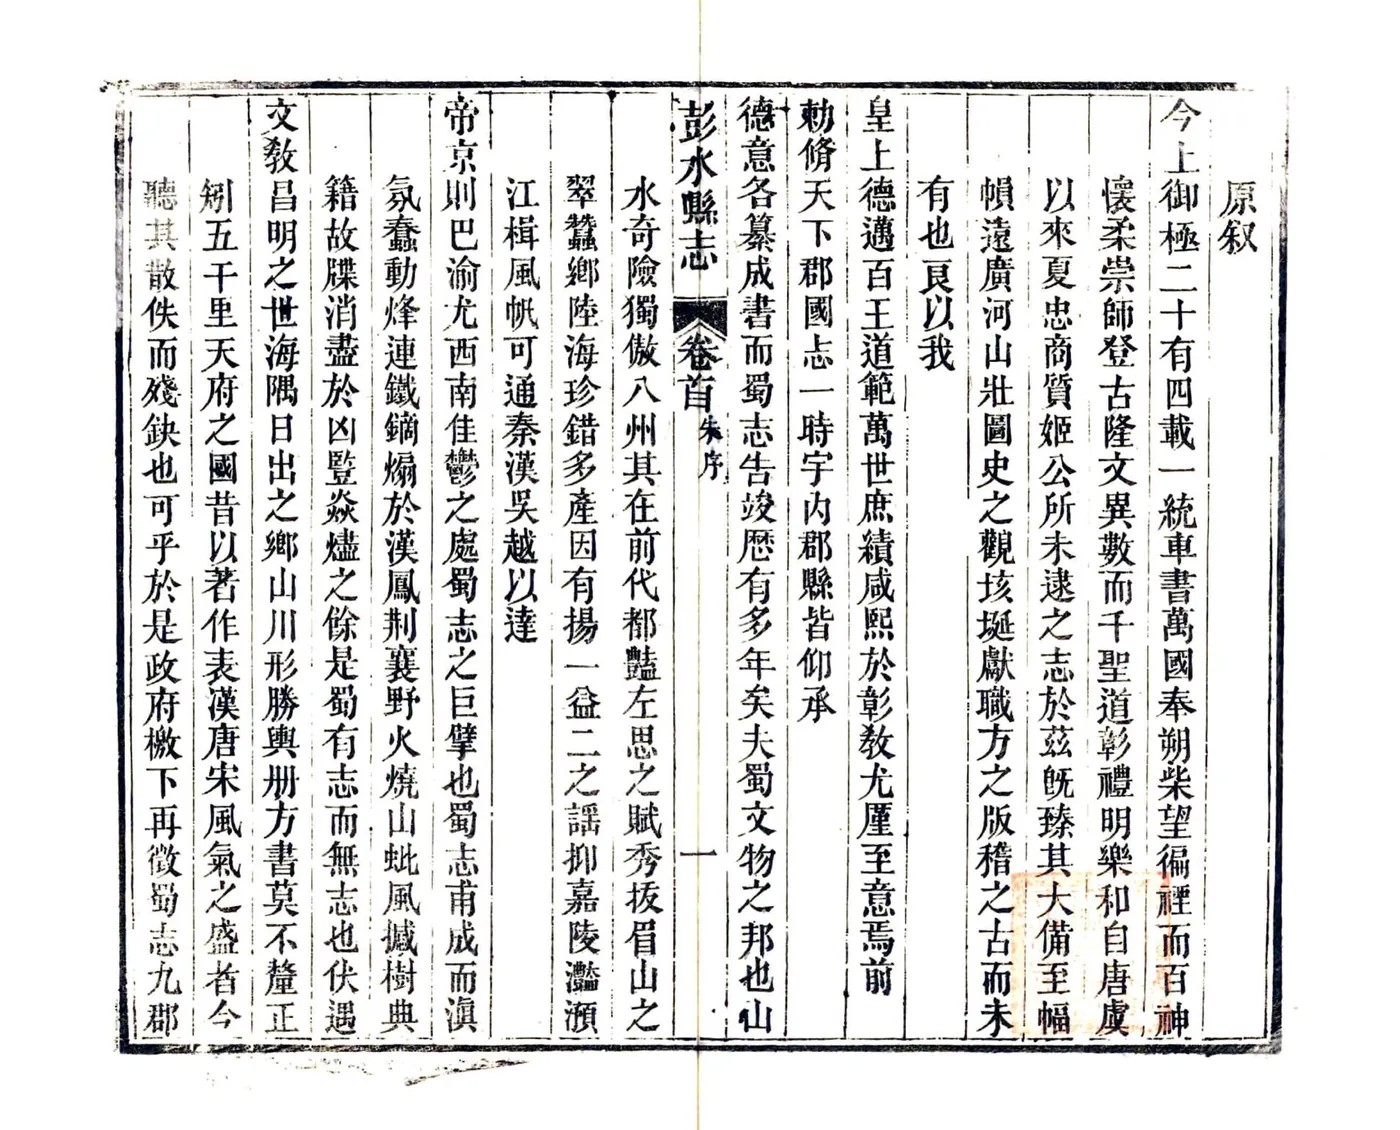 原叙
今上御極二十有四載一統車書萬國奉朔柴望徧禋而百神
懷柔崇師登古隆文異數而千聖道彰禮明樂和自唐虞
以來夏忠商質姬公所未逮之志於茲旣臻其大備至幅
幀遠廣河山壯圖史之觀垓埏獻職方之版稽之古而未
有也良以我
皇上德邁百王道範萬世庶績咸熙於彰敎尤厪至意焉前
勅脩天下郡國志一時宇内郡縣皆仰承
德意各纂成書而蜀志告竣歷有多年矣夫蜀文物之邦也山
彭水縣志
卷首
朱序
一
水奇險獨傲八州其在前代都豔左思之賦秀拔眉山之
翠蠶鄉陸海珍錯多產因有揚一益二之謡抑嘉陵灩澦
江楫風帆可通秦漢吳越以達
帝京則巴渝尤西南佳鬱之處蜀志之巨擘也蜀志甫成而滇
氛蠢動烽連鐵鏑煽於漢鳳荆襄野火燒山蚍風撼樹典
籍故牒消盡於凶豎焱燼之餘是蜀有志而無志也伏遇
文敎昌明之世海隅日出之鄉山川形勝輿册方書莫不釐正
矧五千里天府之國昔以著作表漢唐宋風氣之盛者今
聽其散佚而殘鈌也可乎於是政府檄下再徵蜀志九郡